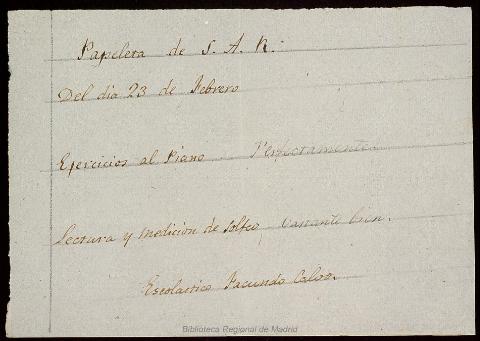 Papeleta de S. A. R.:
Del dia 23 de Febrero
Ejercicios al Piano Perfectamente
Lectura y medicion de solfeo, bastante bien.
Escolastico Facundo Calvo.
Biblioteca Regional de Madrid